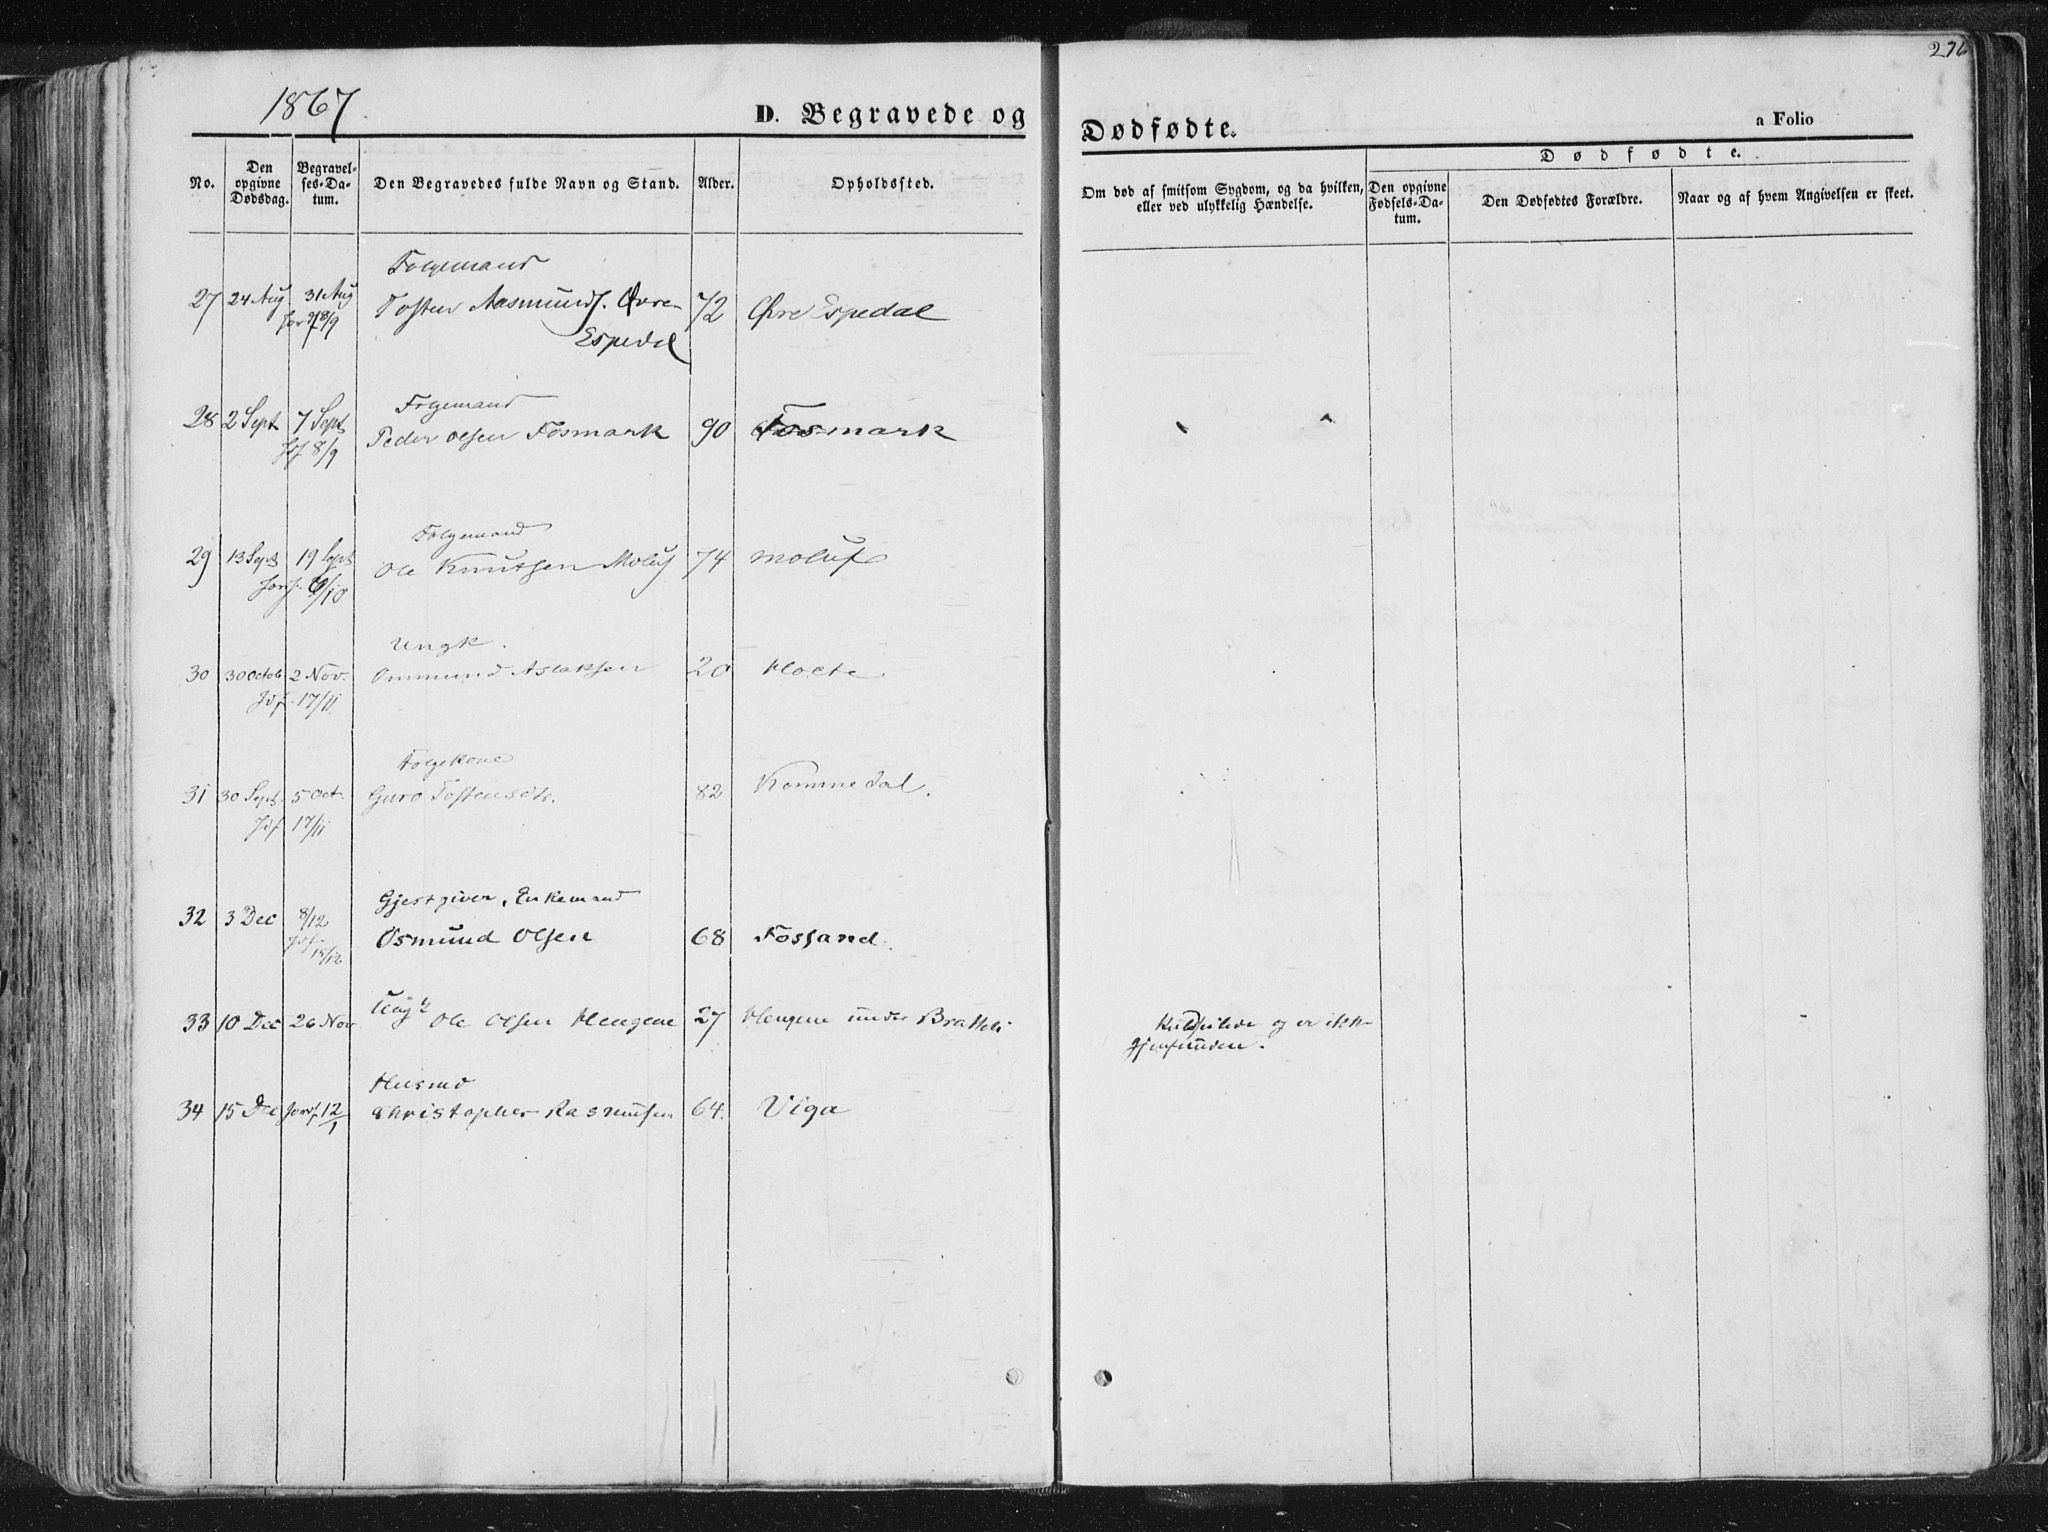 276
1867.
D. Begravede og
Dødfødte.
a Folio
No.
Den opgivne Dødsdag.
Begravelses-Datum.
Den Begravedes fulde Navn og Stand.
Alder.
Opholdssted.
Om død af smitsom Sygdom, og da hvilken, eller ved ulykkelig Hændelse.
Dødfødte.
Den opgivne Fødsels-Datum.
Den Dødfødtes Forældre.
Naar og af hvem Angivelsen er skeet.
Folgemand
27 24 Aug 31 Aug Tosten Aasmunds. Øvre- 72 Øvre Espedal
8/9 Espedal
Folgemand
28 2 Sept 7 Sept Peder Olsen Fosmark 90 Fosmark
Jf 8/9
Folgemand
29 13 Sept 19 Sept Ole Knutsen Moluf 74 Moluf
Jordf. 6/10
Ungk.
30 30 Octob 2 Nov. Ommund Aslaksen 20 Holte
Jdf. 17/11
Folgekone
31 30 Sept. 5 Oct. Guro Tostensdtr. 82 Kommedal.
Jdf. 17/11
Gjestgiver, Enkemand
32 3 Dec 8/12 Osmund Olsen 68 Fossand.
Jdf. 15/12
33 10 Dec 26 Nov Ungk Ole Olsen Hengene 27 Hengene under Bratteli
og er ikke
gjenfunden.
Husmd
34 15 Dec Jordf. 12/1 Christopher Rasmusen 64. Viga